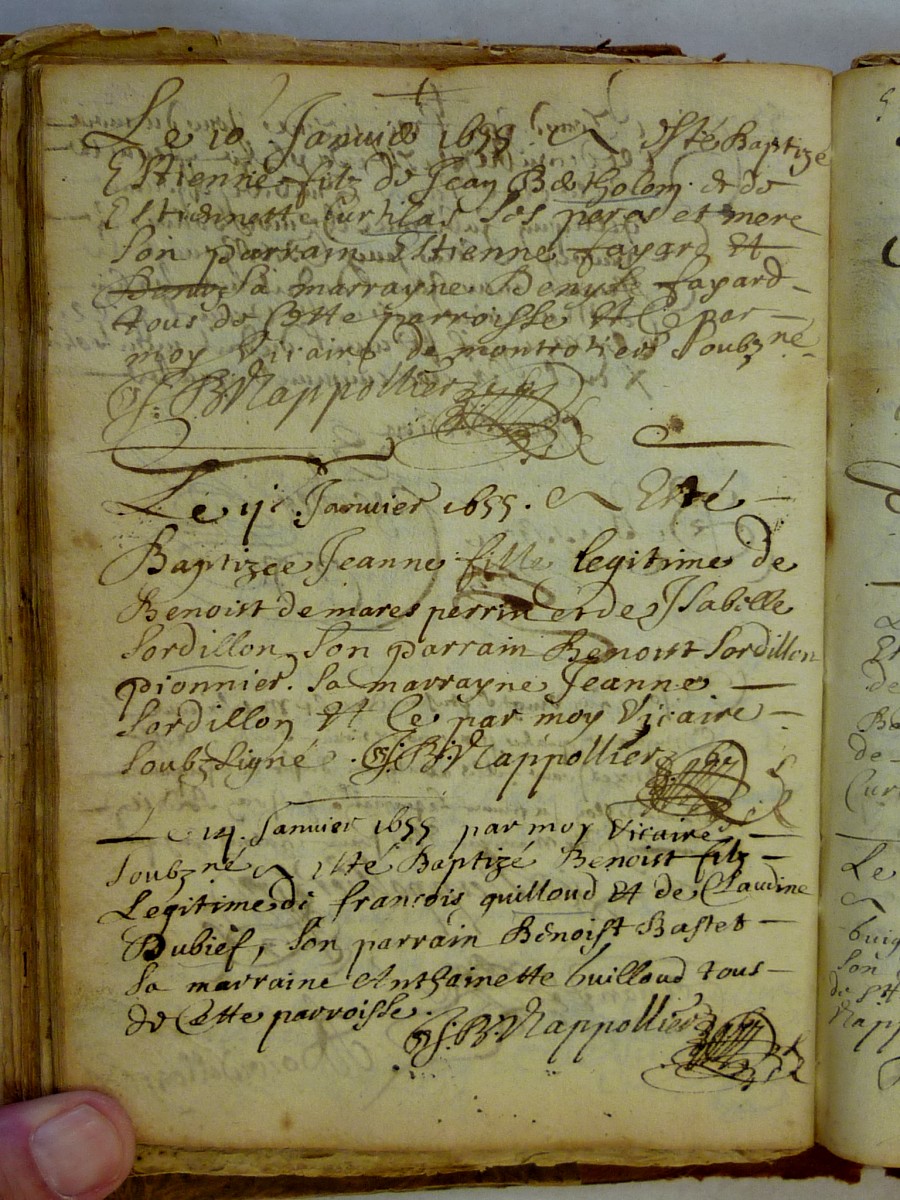 Le 10 Januier 1655 a esté Baptizé
Estienne filz de Jean Bertholon et de
Estiennette Curtilas ses peres et mere
Son parrain Estienne fayard et
Sa marrayne Benoiste fayard
tous de Cette parroisse et Ce par
moy Vicaire de montrotier Soubzné
J. B. Nappollier
Le 11 Januier 1655. a Esté
Baptizee Jeanne fille legitime de
Benoist de mares perrin et de Isabelle
Sordillon Son parrain Benoist Sordillon
pionnier. Sa marrayne Jeanne
Sordillon et Ce par moy Vicaire
Soubz Signé. J. B. Nappollier
Le 14. Januier 1655 par moy Vicaire
Soubzné a esté Baptizé Benoist filz
Legitime de françois guilloud et de Claudine
Dubief, Son parrain Benoist Bastet
Sa marraine Anthoinette Guilloud tous
de Cette parroisse.
J. B. Nappollier